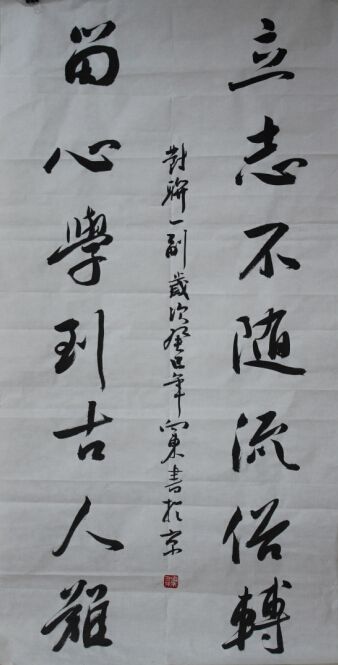 立志不随流俗轉
留心學到古人難
對聯一副歲次癸巳年向東書於京